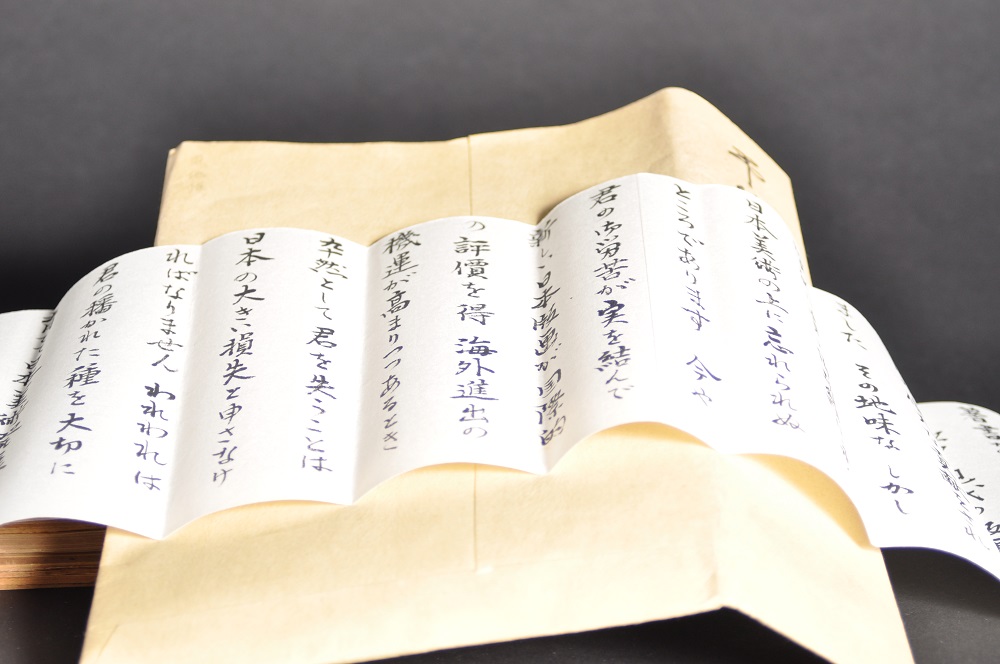 ました その地味な しかし
日本美術の上に忘れられぬ
ところであります 今や
君の御労苦が実を結んで
新しい日本版画が国際的
の評價を得 海外進出の
機運が高まりつつあるとき
卒然として君を失うことは
日本の大きい損失と申さなけ
ればなりません われわれは
君の播かれた種を大切に